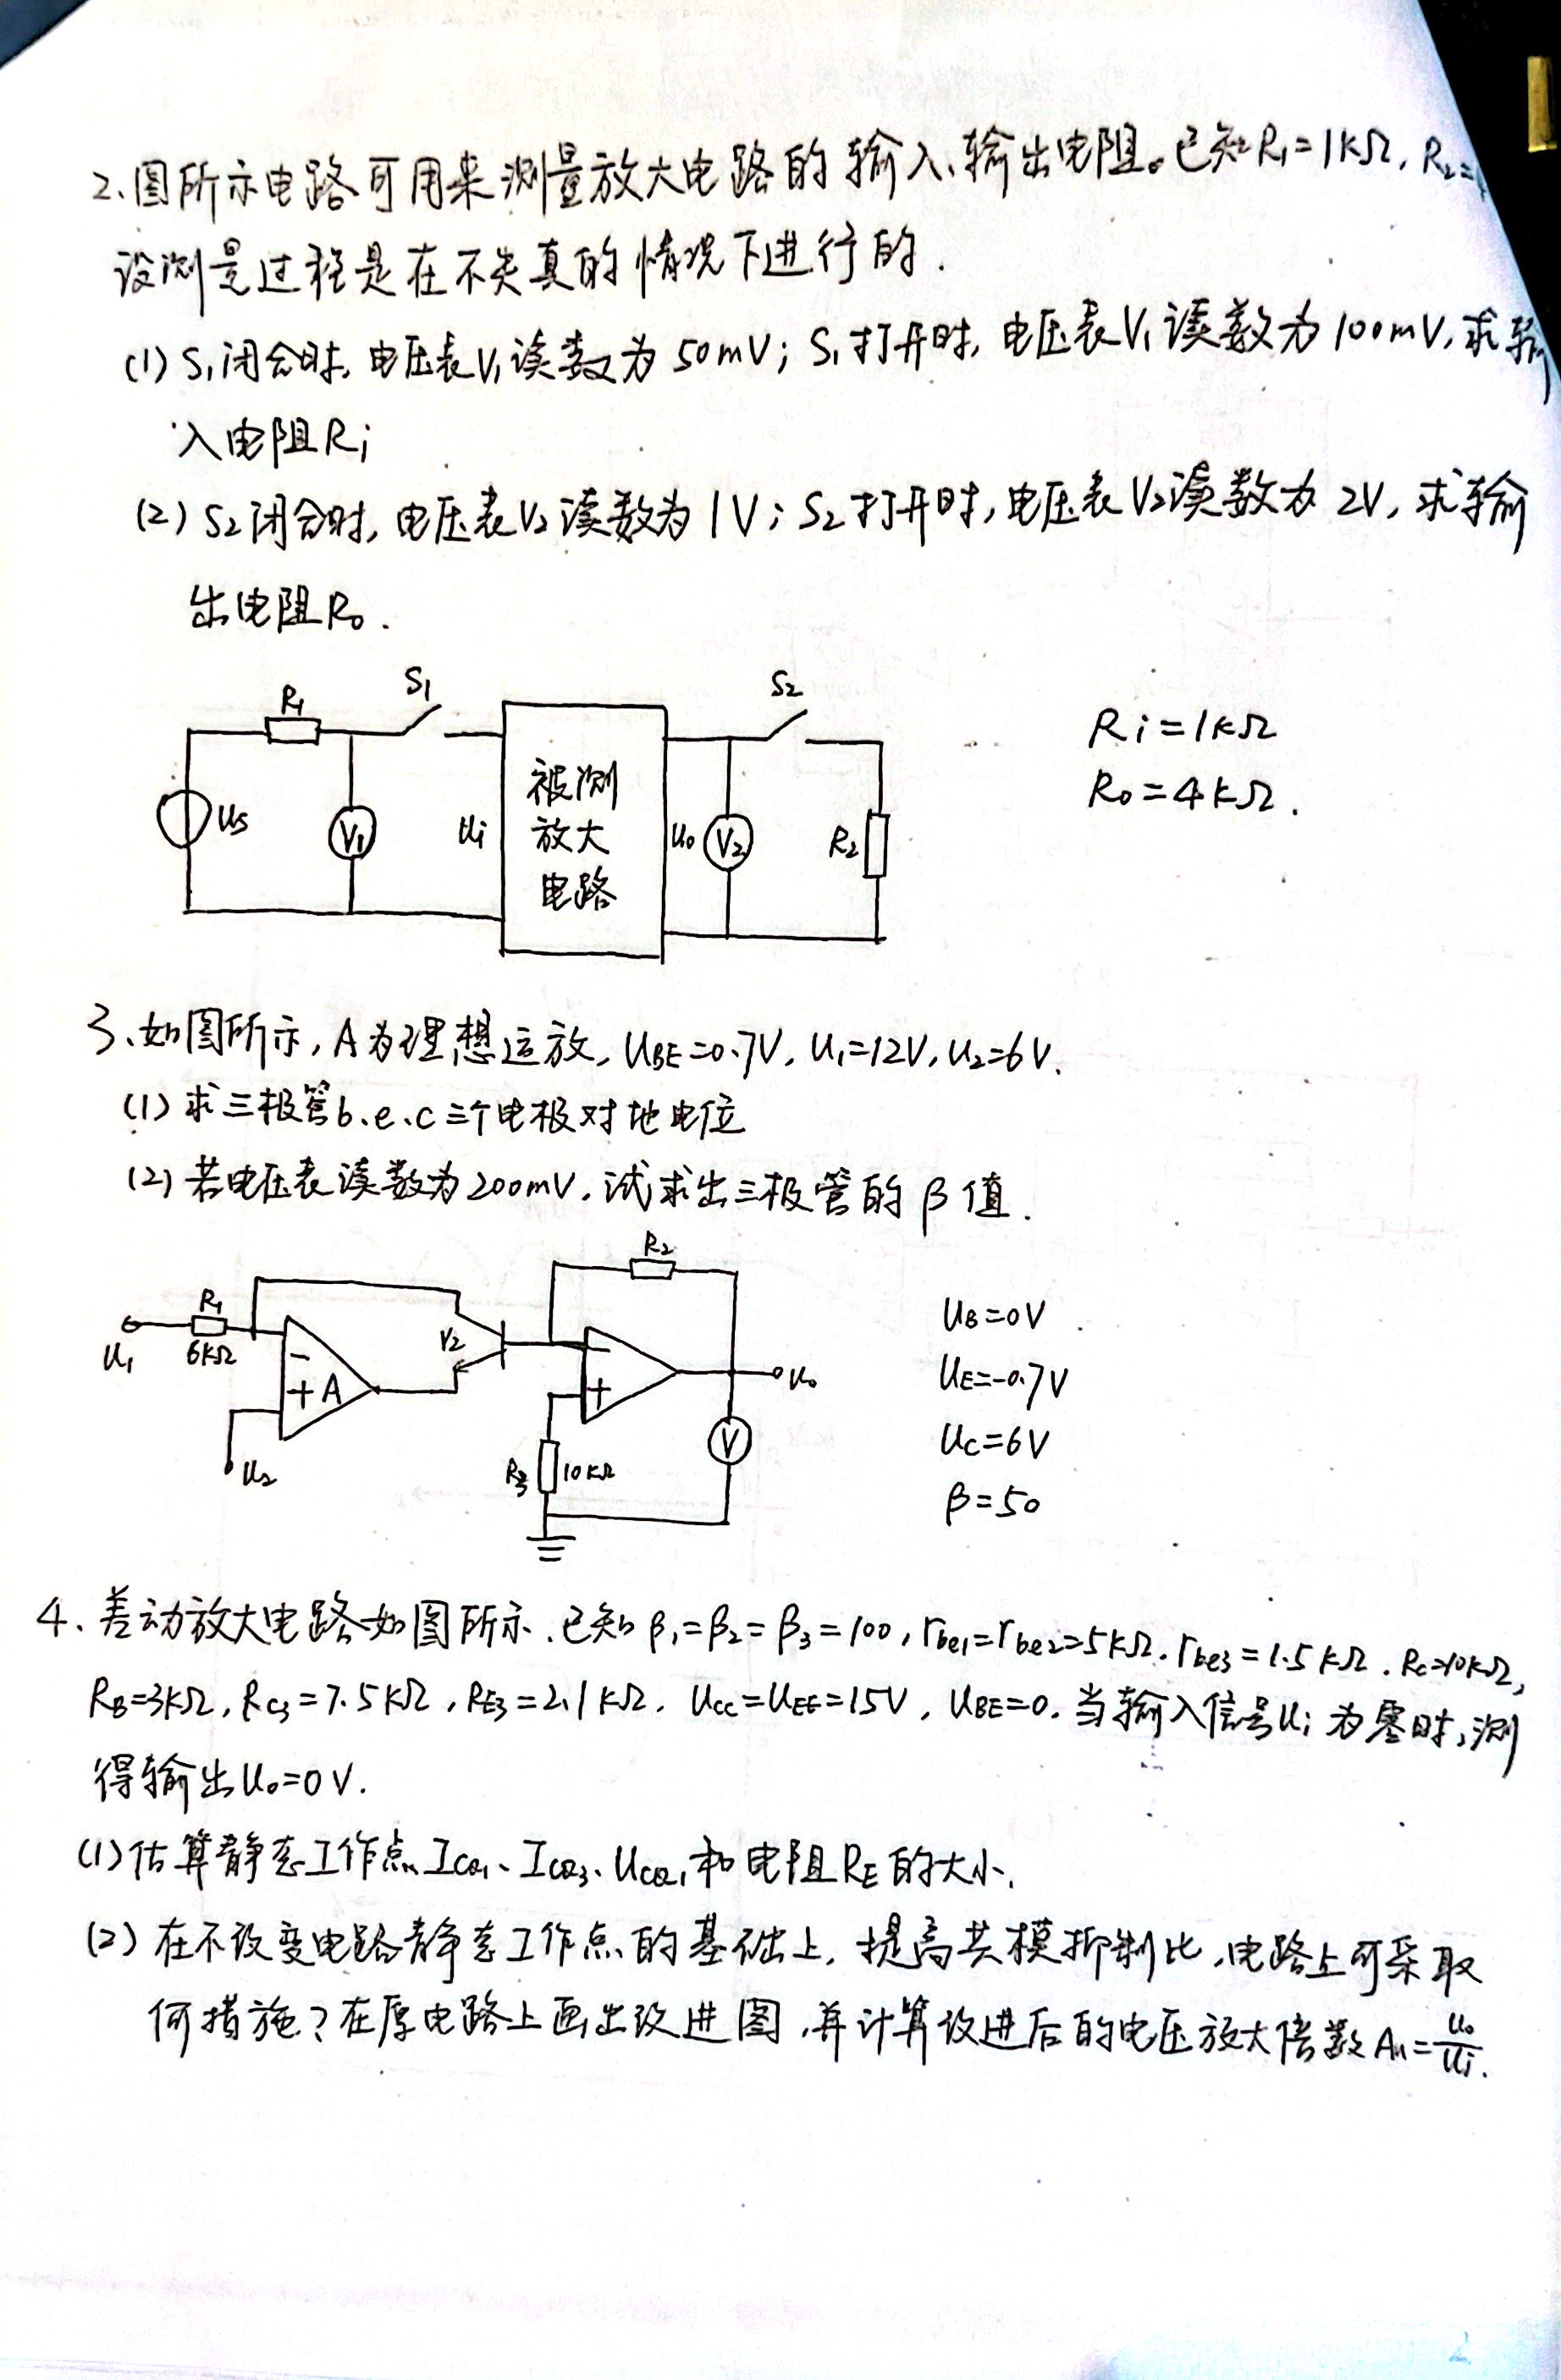 2、图所示电路可用来测量放大电路的输入、输出电阻。已知R₁=1kΩ, R₂=
设测量过程是在不失真的情况下进行的.
(1) S₁闭合时, 电压表V₁读数为 50mV; S₁打开时, 电压表V₁读数为 100mV, 求输
入电阻Ri
(2) S₂闭合时, 电压表V₂读数为 1V; S₂打开时, 电压表V₂读数为 2V, 求输
出电阻R₀.
R₁
S₁
S₂
Us
V₁
Ui
被测
放大
电路
U₀
V₂
R₂
Ri=1kΩ
R₀=4kΩ.
3、如图所示, A为理想运放, UBE=0.7V, U₁=12V, U₂=6V.
(1) 求三极管b、e、c三个电极对地电位
(2) 若电压表读数为200mV, 试求出三极管的β值.
R₁
6kΩ
U₁
U₂
-
+
A
V₂
R₂
-
+
U₀
V
R₃
10kΩ
UB=0V
UE=-0.7V
UC=6V
β=50
4、差动放大电路如图所示.已知β₁=β₂=β₃=100, rbe1=rbe2=5kΩ, rbe3=1.5kΩ, Rc=10kΩ,
RB=3kΩ, RC3=7.5kΩ, RE3=2.1kΩ, UCC=UEE=15V, UBE=0. 当输入信号Ui为零时, 测
得输出U₀=0V.
(1)估算静态工作点ICQ1、ICQ3、UCQ1和电阻RE的大小.
(2) 在不改变电路静态工作点的基础上, 提高共模抑制比, 电路上可采取
何措施? 在原电路上画出改进图, 并计算改进后的电压放大倍数Au=U₀/Ui.